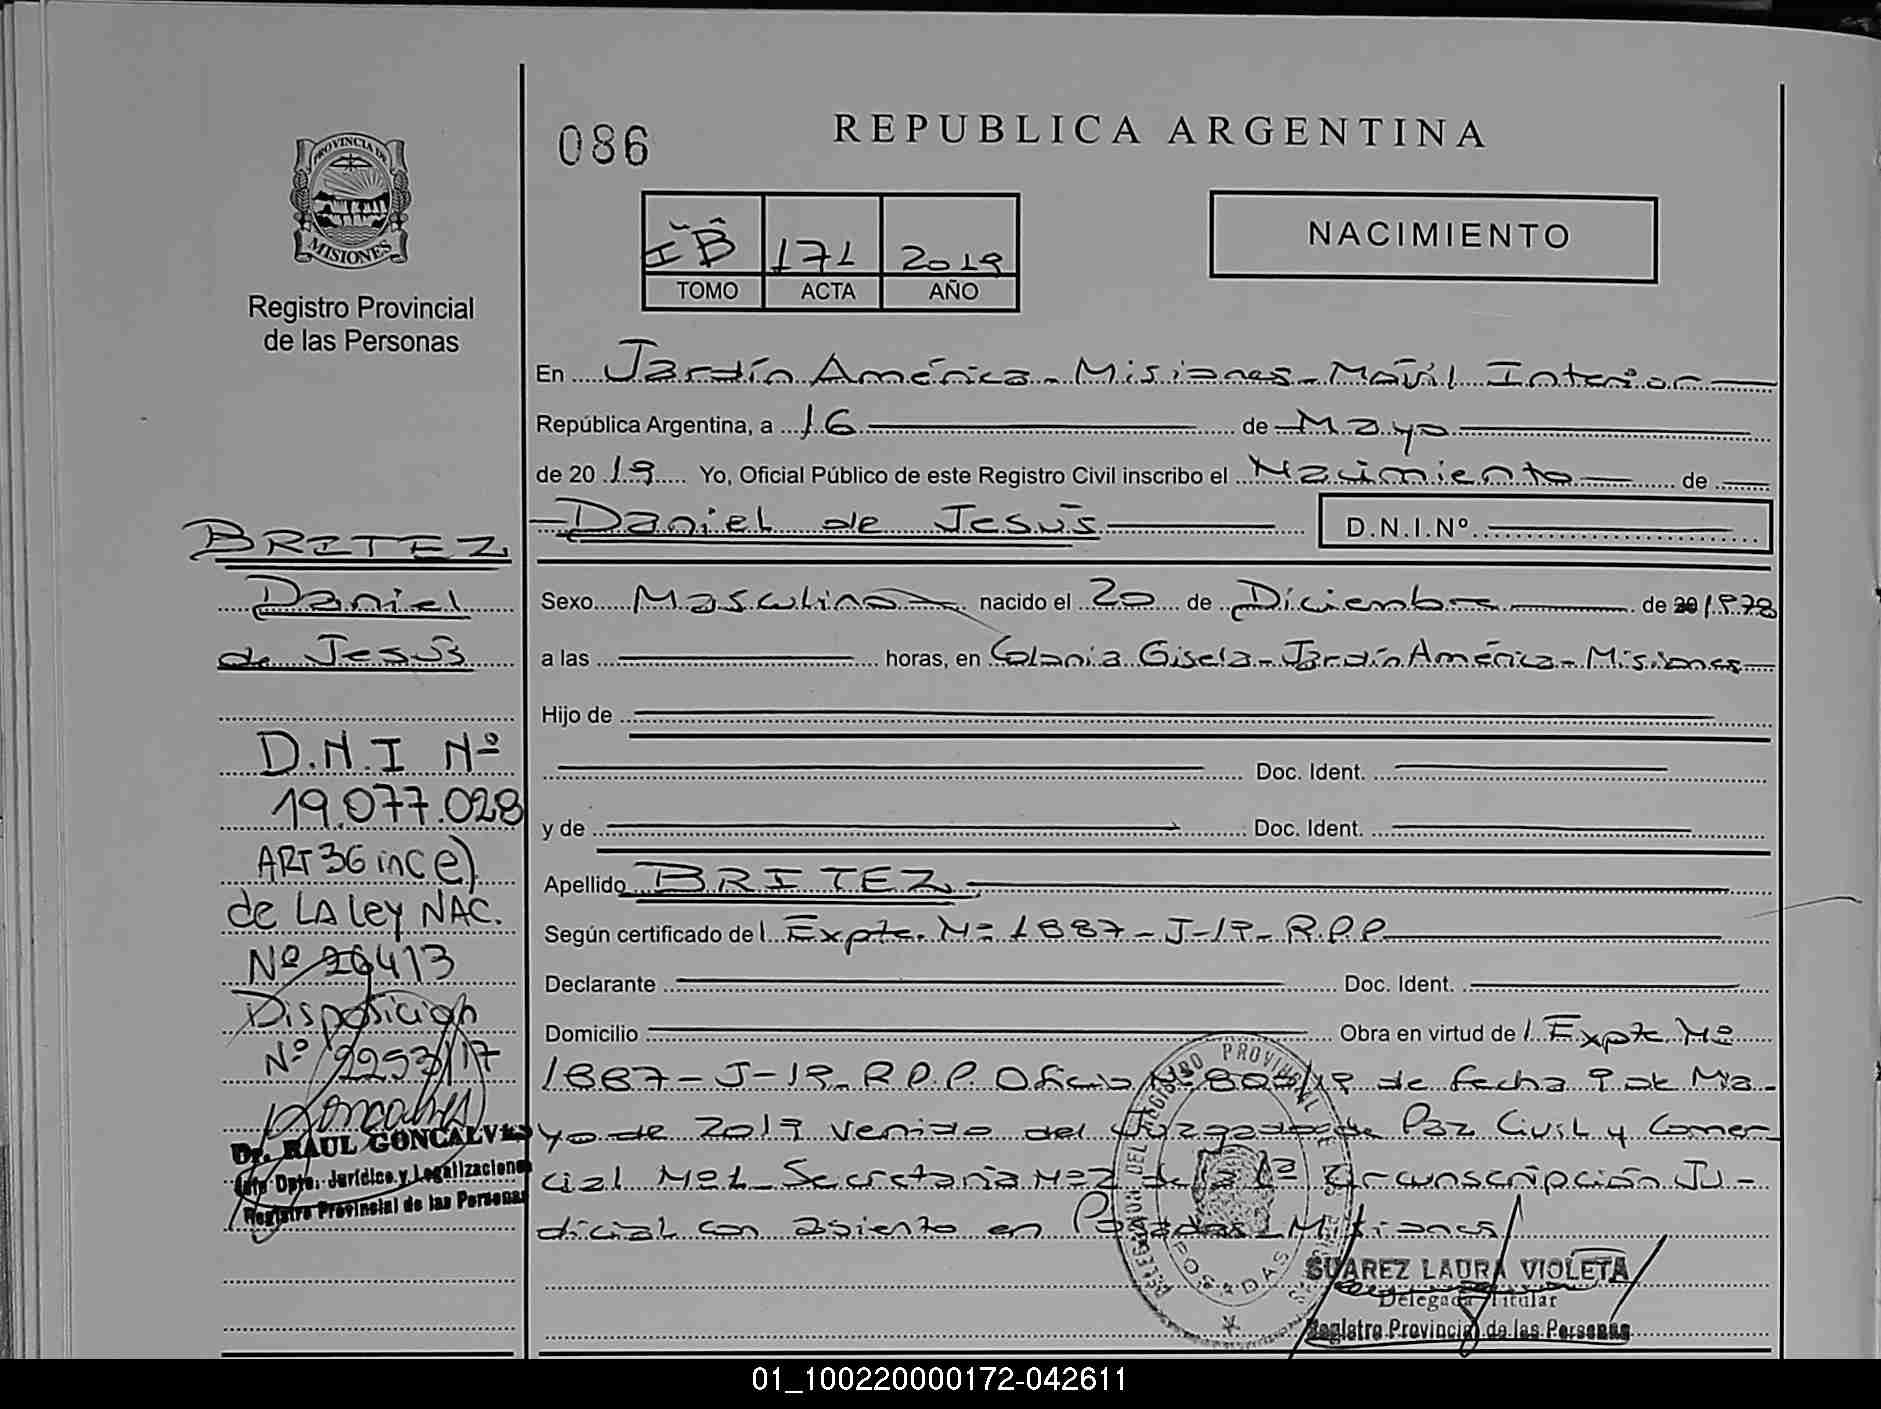 PROVINCIA DE
MISIONES
Registro Provincial
de las Personas
BRITEZ
Daniel
de Jesús
D.N.I Nº
19.077.028
ART 36 inc e)
de LA Ley NAC.
Nº 26413
Disposicion
Nº 2253/17
Dr. RAUL GONCALVES
Jefe Dpto. Jurídico y Legalizaciones
Registro Provincial de las Personas
086
REPUBLICA ARGENTINA
I B 171 2019
TOMO ACTA AÑO
NACIMIENTO
En Jardín América - Misiones - Móvil Interior
República Argentina, a 16 de Mayo
de 20 19 Yo, Oficial Público de este Registro Civil inscribo el Nacimiento de
Daniel de Jesús D.N.I.Nº
Sexo Masculino nacido el 20 de Diciembre de 20 1978
a las horas, en Colonia Gisela - Jardín América - Misiones
Hijo de
Doc. Ident.
y de Doc. Ident.
Apellido BRITEZ
Según certificado del Expte. Nº 1887 - J - 19 - R.P.P.
Declarante Doc. Ident.
Domicilio Obra en virtud del Expte Nº
1887 - J - 19 - R.P.P. Oficio Nº /19 de fecha 9 de Ma-
yo de 2019 venido del Juzgado de Paz Civil y Comer-
cial Nº 1 - Secretaría Nº 2 de la 1ª Circunscripción Ju-
dicial con asiento en Posadas - Misiones
DELEGACION DEL REGISTRO PROVINCIAL DE LAS
POSADAS
SUAREZ LAURA VIOLETA
Delegada Titular
Registro Provincial de las Personas
01_100220000172-042611